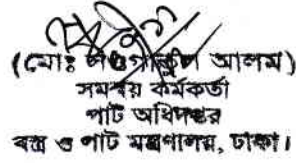 (মোঃ আলম)
সমন্বয় কর্মকর্তা
পাট অধিদপ্তর
বস্ত্র ও পাট মন্ত্রণালয়, ঢাকা।